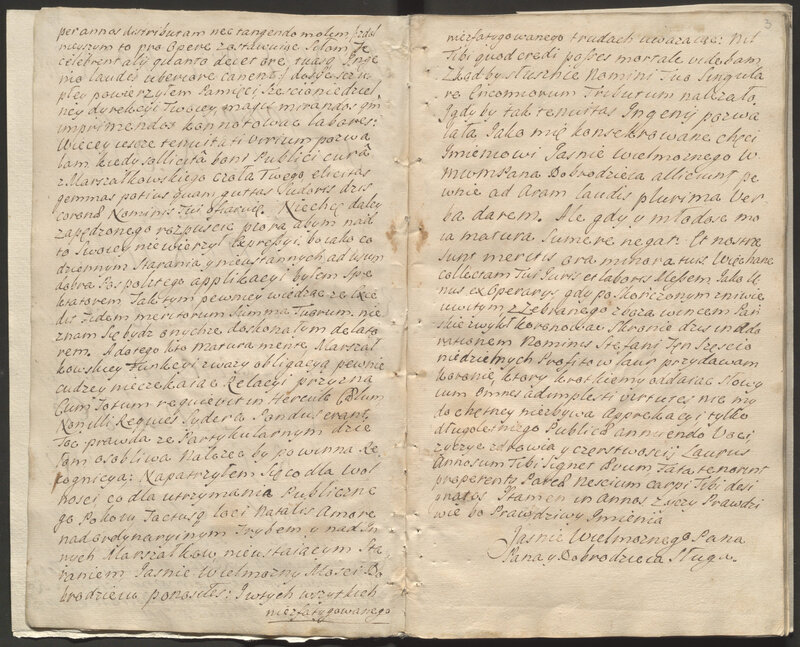 per annos distributam nec tangendo molem szdol
nieyszym to pro Opere zostawuiąc Sclam Te
celebrent aly quanto decet ore, tuasq Inge
nio laudes uberiore canent
pley powierzyłem Pamięci Sześcioniedziel
ney dyrekcyi Twoiey, magis mirandos qm
imprimendos konnotować labores:
Więcey ieszcze tenuitati Virium pozwa
lam kiedy sollicita boni Publici cura
z Marszałkowskiego czoła Twego elicitas
gemmas potius quam guttas Sudoris dzis
corona Nominis Tui obiaśnię. Niechcę daley
zapędzonego rozpuscić piora abym nad
to Swoiey nie wierzył
dziennym Starania y nieustannych ad usum
dobra Pospolitego applikacyi byłem Spe
ktatorem Tak tym pewniey wiedząc ze
dit Fidem meritorum Summa Tuorum. nie
znam Się bydz onychze doskonałym delato
rem. A do tego kto matura mente Marszał
kowskiey Funkcyi zwazy obligacyą pewnie
cudzey nieczekaiąc Relacyi przyzna
Cum Totum requievit in Hercule Cœlum
Non illi Requies Sydera Pondus erant
Toć prawda ze Partykularnym dzie
łom osobliwa Nalezeć by powinna Re
kognicya: Napatrzyłem Się co dla Wol
nosci co dla utrzymania Publiczne
go Pokoiu Tactusq loci Natalis Amore
nad ordynaryinym Trybem y nad In
nych Marszałkow nieustaiącym Sta
raniem Jasnie Wielmozny Mosci Do
brodzieiu ponosiłes: I w tych wszytkich
niezfatygowanego
3
niezfatygowanego trudach uwazaiąc: Nil
Tibi quod credi posses mortale videbam
Zkąd by słusznie Nomini Tuo Singula
re Encomiorum Tributum nalezało
Igdy by tak tenuitas Ingenij pozwa
lała Jako mię konsekrowane chęci
Imieniowi Jasnie Wielmoznego W
Mwm Pana Dobrodzieia alliciunt pe
wnie ad Aram laudis plurima Ver
ba darem. Ale gdy y młodosc mo
ia matura Sumere negat: Et nostra
Sunt meritis ora minora tuis Więc hanc
collectam Tui Juris et laboris Mebem Jako U
nus ex Operarys, gdy po Skończonym zniwie
uwitym z Zebranego zboza wincem Pań
skie zwykł koronować Skronie dzis in ado
rationem Nominis Stefani Tyn Szescio
niedzielnych Profitow laur przydawam
koronie, ktory krotkiemi oddaiąc Słowy
ium Omnes adimplesti virtutes nie my
do chętney niezbywa apprekacyi tylko
długoletniego Publico annuendo Voci
zyczyć zdrowia y czerstwosci; Laurus
Annosum Tibi Signet Ævum Fata tenorent
properent Parcæ nescium carpi Tibi desi
gnatos Stamen in Annos Zyczy Prawdzi
wie bo Prawdziwy Imienia
Jasnie Wielmoznego Pana
Pana y Dobrodzieia Sługa.